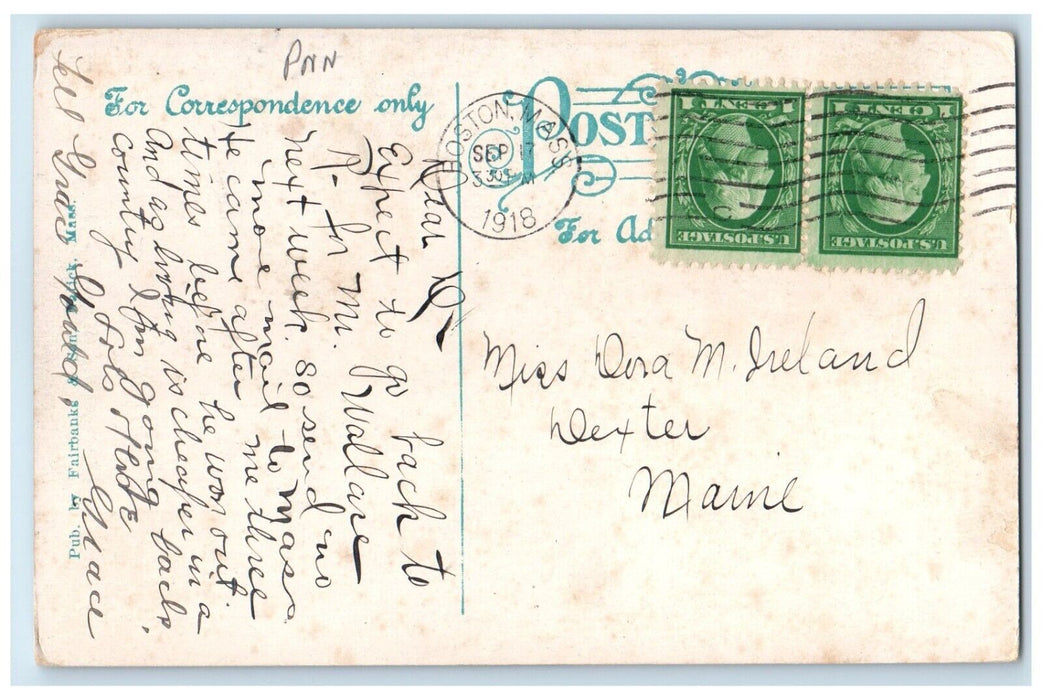 PNN
For Correspondence only
BOSTON, MASS.
SEP 17
330 PM
1918
POST
For Ad
1 CENT 1
U.S. POSTAGE
1 CENT 1
U.S. POSTAGE
Miss Dora M. Ireland
Dexter
Maine
Dear D-
Expect to go back to
R- for Mr. Wallace
next week. So send no
more mail to Mass
He came after me three
times before he won out.
And as hown is cheaper in a
country I'm going back,
Lots Love Grace
Tell Grace Gould,
Pub. by Fairbanks & Mass.